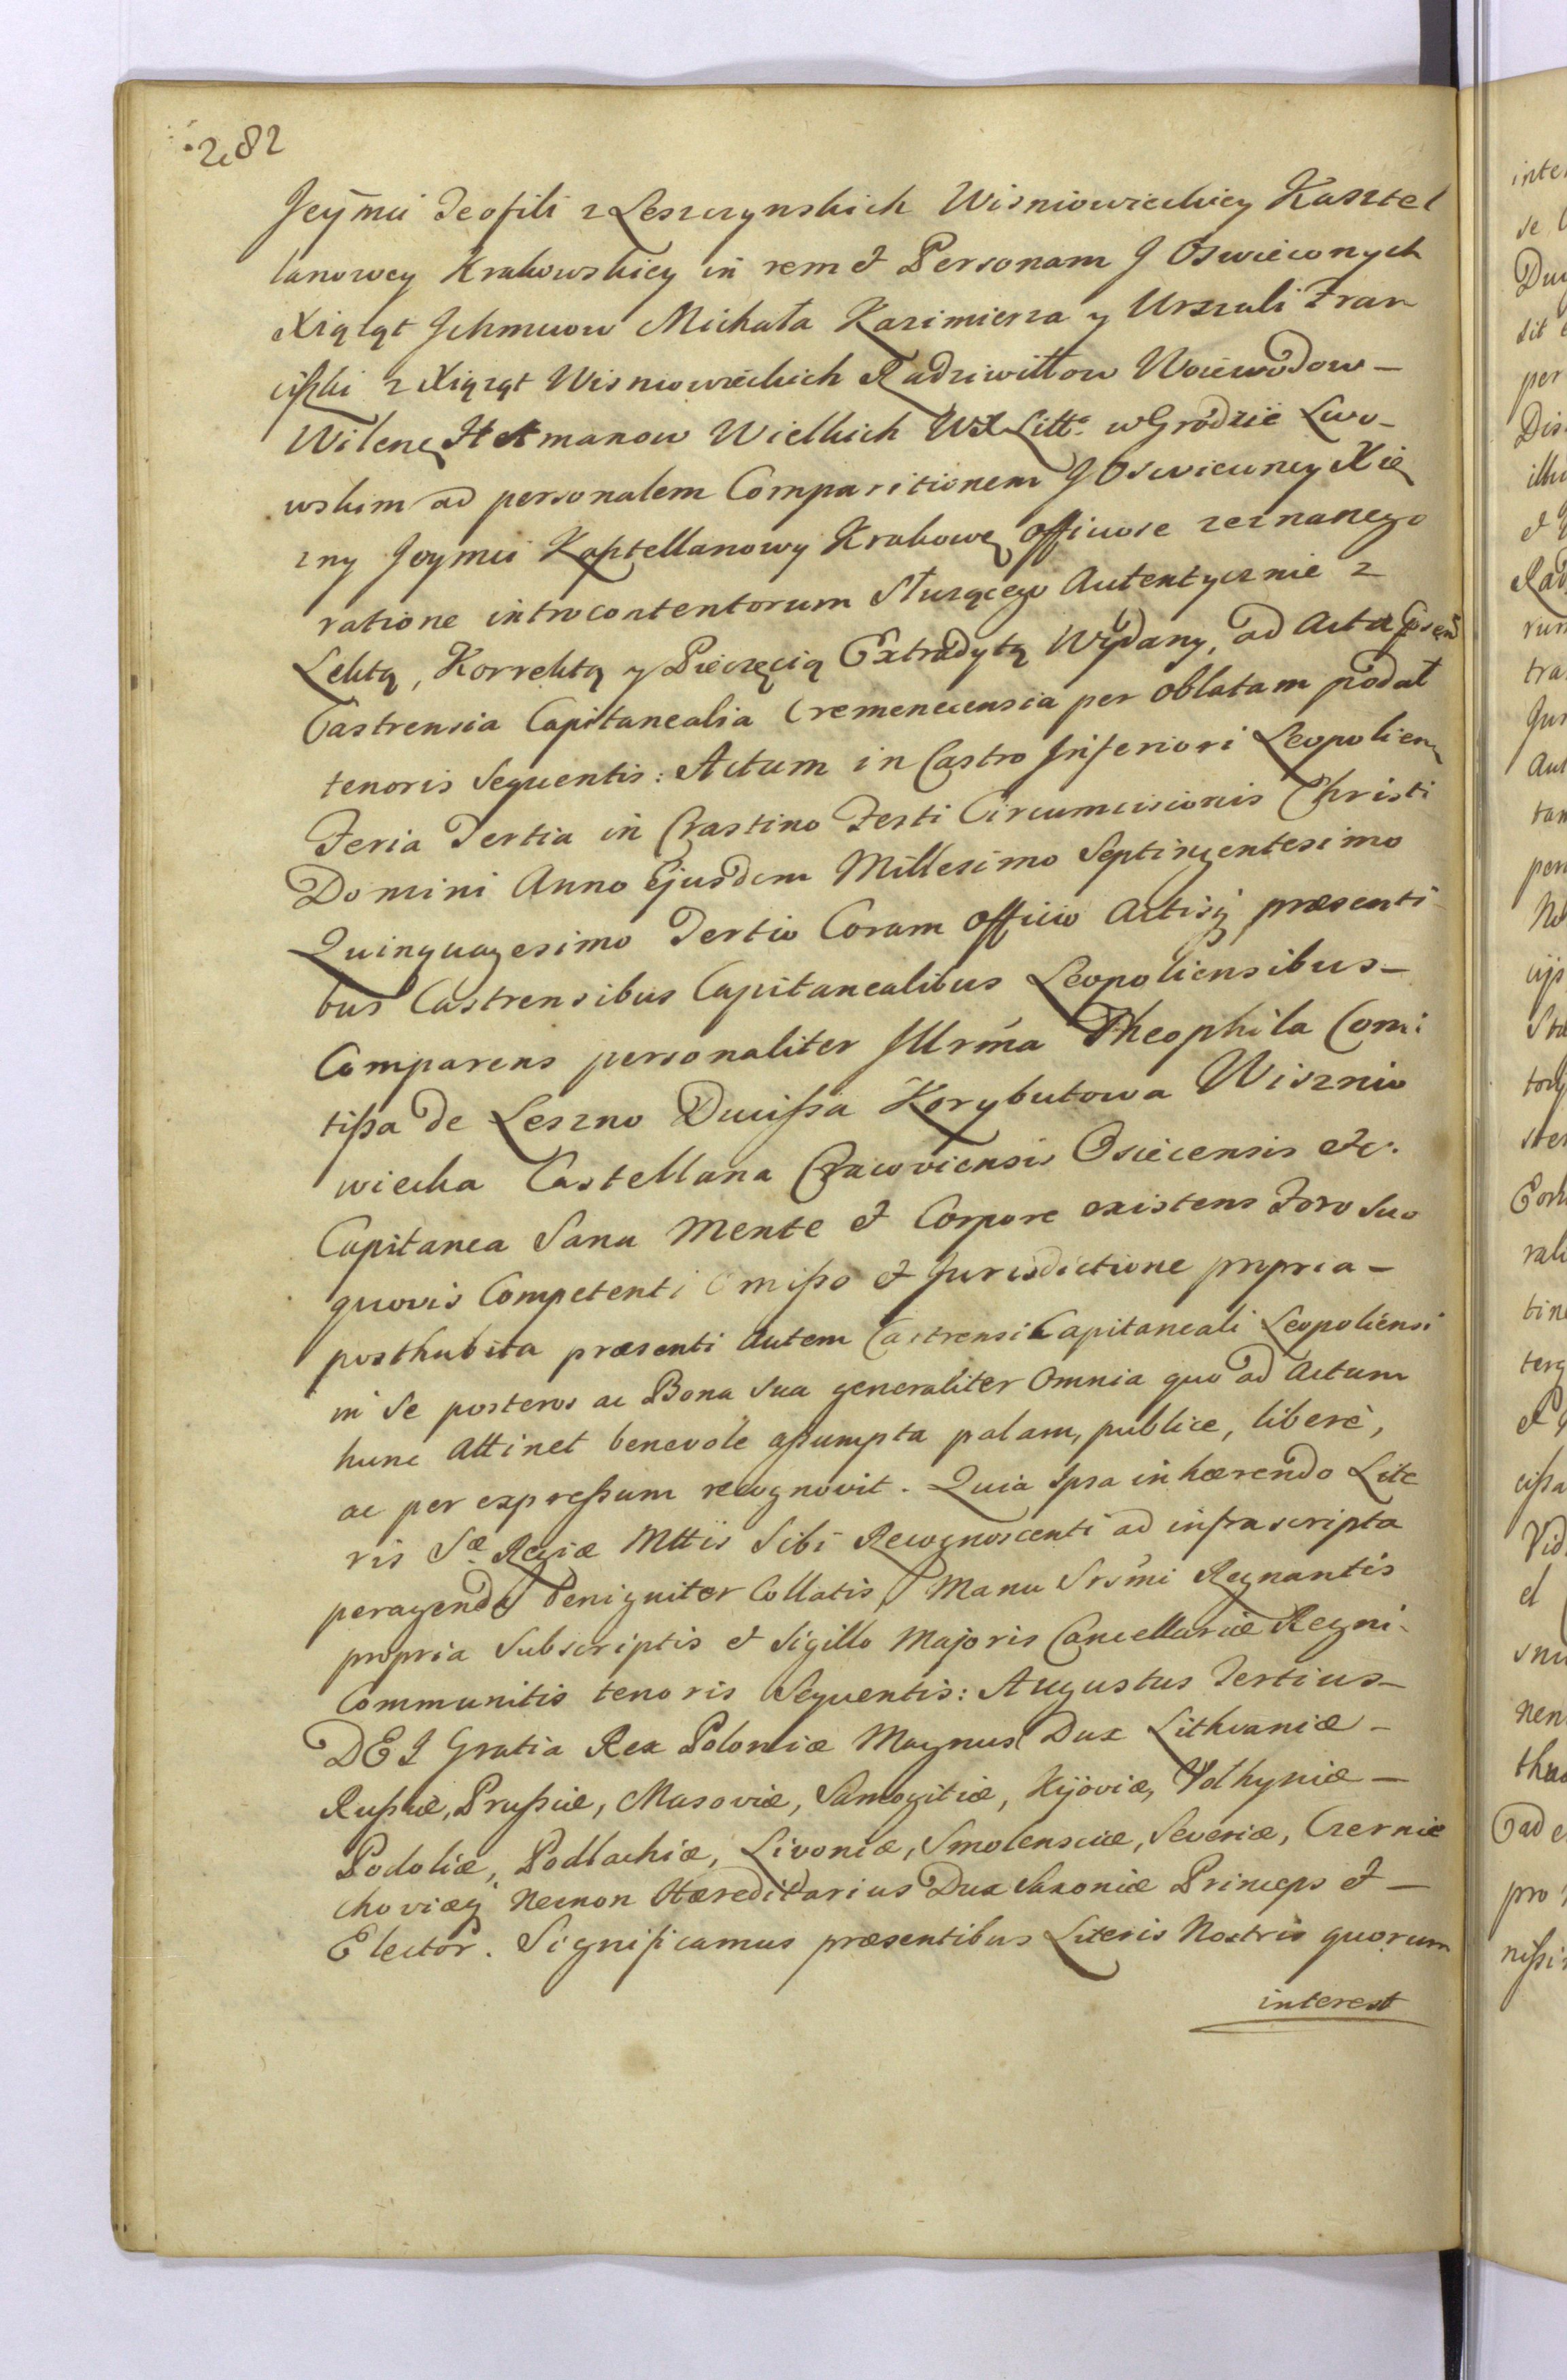 282
Jeymci Teofili z Leszczynskich Wisniowieckiey Kasztel
lanowey Krakowskiey in rem et Personam J Oswieconych
Xiążąt Jchmciow Michała Kazimierza y Urszuli Fran
ciszki z Xiążąt Wisniowieckich Radziwiłłow Woiewodow –
Wilenę Hetmanow Wielkich WX Litte. w Grodzie Lwo-
wskim ad personalem Comparitionem J Oswieconey Xię
zny Jeymci Kasztellanowy Krakowę officiose zeznanego
ratione introcontentorum służącego Autentycznie z
Lektą, Korrektą y Pieczęcią Extradytą Wydany, ad Acta psen
Castrensia Capitanealia Cremenecensia per oblatam podał
tenoris Sequentis: Actum in Castro Inferiori Leopolien
Feria Tertia in Crastino Festi Circumcisionis Christi
Domini Anno Ejusdem Millesimo Septingentesimo
Quinquagesimo Tertio Coram Officio Actisq præsenti
bus Castrensibus Capitanealibus Leopoliensibus –
Comparens personaliter Illrma Theophila Comi
tissa de Leszno Ducissa Korybutowa Wisznio
wiecka Castellana Cracoviensis Osiecensis etc.
Capitanea Sana Mente et Corpore existens Foro Suo
quovis Competenti Omisso et Jurisdictione propria –
posthabita præsenti autem Castrensi Capitaneali Leopoliensi
in Se posteros ac Bona sua generaliter Omnia quo ad Actum
hunc attinet benevole assumpta palam, publice, liberè,
ac per expressum recognovit. Quia Ipsa inhærendo Lite
ris Sæ Regiæ Mttis Sibi Recognoscenti ad infrascripta
peragenda benigniter Collatis, Manu Srsmi Regnantis
propria Subscriptis et Sigillo Majoris Cancellariæ Regni
Communitis tenoris Sequentis: Augustus Tertius –
DEI Gratia Rex Poloniæ Magnus Dux Lithvaniæ –
Russiæ, Prussiæ, Masoviæ, Samogitiæ, Kijoviæ, Volhyniæ –
Podoliæ, Podlachiæ, Livoniæ, Smolensciæ, Severiæ, Czernie
choviæq Necnon Hæreditarius Dux Saxoniæ Princeps et –
Elector. Significamus præsentibus Literis Nostris quorum
interest